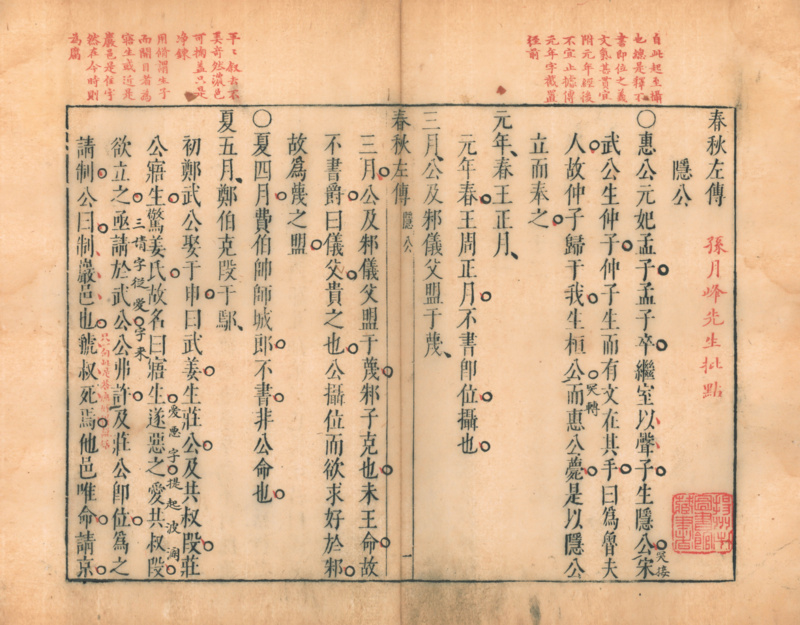 自此起至攝
也總是釋不
書即位之義
文氣甚貫宜
附元年經後
不宜止據傳
元年字截置
經前
春秋左傳
孫月峰先生批點
隱公
○惠公元妃孟子孟子卒繼室以聲子生隱公宋
突接
武公生仲子仲子生而有文在其手曰爲魯夫
人故仲子歸于我生桓公而惠公薨是以隱公
突轉
立而奉之
元年春王正月
元年春王周正月不書即位攝也
三月公及邾儀父盟于蔑
春秋左傳 隱公 一
三月公及邾儀父盟于蔑邾子克也未王命故
不書爵曰儀父貴之也公攝位而欲求好於邾
故爲蔑之盟
○夏四月費伯帥師城郎不書非公命也
夏五月鄭伯克段于鄢
平平敘去不
甚奇然濃色
可掬蓋只是
淨鍊
用倚謂生子
而開目者爲
寤生或近是
巖邑是住字
然在今時則
爲腐
初鄭武公娶于申曰武姜生莊公及共叔段莊
公寤生驚姜氏故名曰寤生遂惡之愛共叔段
愛惡字提起波瀾
欲立之亟請於武公公弗許及莊公即位爲之
三請字從愛字來
請制公曰制巖邑也虢叔死焉他邑唯命請京